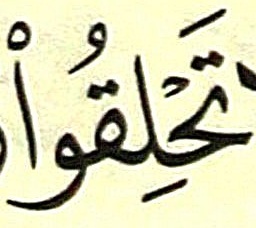 تَحْلِقُواْ